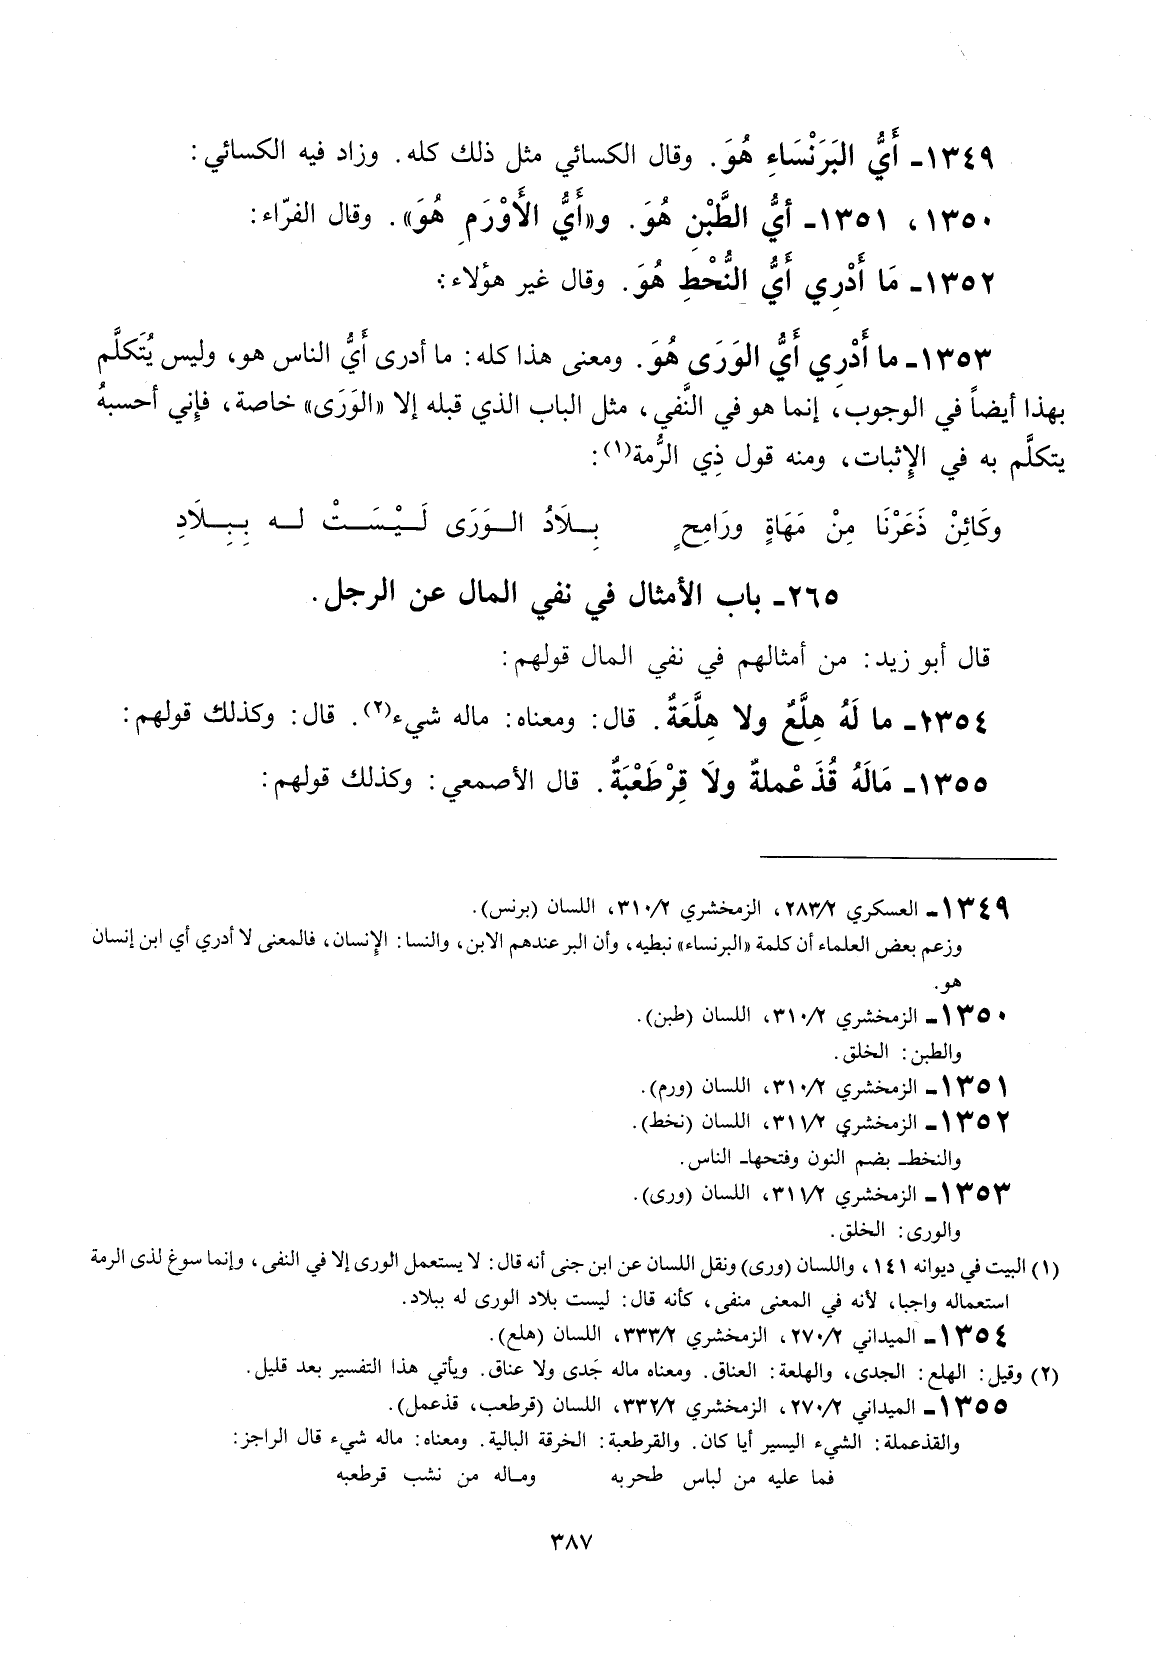 ١٣٤٩ـ أَيُّ البَرَنْسَاءِ هُوَ. وقال الكسائي مثل ذلك كله. وزاد فيه الكسائي:
١٣٥٠، ١٣٥١ـ أَيُّ الطَّبْنِ هُوَ. و«أَيُّ الأَوْرَمِ هُوَ». وقال الفرّاء:
١٣٥٢ـ مَا أَدْرِي أَيُّ النُّخْطِ هُوَ. وقال غير هؤلاء:
١٣٥٣ـ ما أَدْرِي أَيُّ الوَرَى هُوَ. ومعنى هذا كله: ما أدرى أَيُّ الناس هو، وليس يُتَكلَّم
بهذا أيضاً في الوجوب، إنما هو في النَّفي، مثل الباب الذي قبله إلا «الوَرَى» خاصة، فإني أحسبهُ
يتكلَّم به في الإِثبات، ومنه قول ذِي الرُّمة(١):
وكَائِنْ ذَعَرْنَا مِنْ مَهَاةٍ ورَامِحٍ بِلَادُ الوَرَى لَيْسَتْ له بِبِلَادِ
٢٦٥ـ باب الأمثال في نفي المال عن الرجل.
قال أبو زيد: من أمثالهم في نفي المال قولهم:
١٣٥٤ـ ما لَهُ هِلَّعٌ ولا هِلَّعَةٌ. قال: ومعناه: ماله شيء(٢). قال: وكذلك قولهم:
١٣٥٥ـ مَالَهُ قُذَعْملةٌ ولَا قِرْطَعْبَةٌ. قال الأصمعي: وكذلك قولهم:
١٣٤٩ـ العسكري ٢٨٣/٢، الزمخشري ٣١٠/٢، اللسان (برنس).
وزعم بعض العلماء أن كلمة «البرنساء» نبطيه، وأن البر عندهم الابن، والنسا: الإنسان، فالمعنى لا أدري أي ابن إنسان
هو.
١٣٥٠ـ الزمخشري ٣١٠/٢، اللسان (طبن).
والطبن: الخلق.
١٣٥١ـ الزمخشري ٣١٠/٢، اللسان (ورم).
١٣٥٢ـ الزمخشري ٣١١/٢، اللسان (نخط).
والنخط ـ بضم النون وفتحها ـ الناس.
١٣٥٣ـ الزمخشري ٣١١/٢، اللسان (ورى).
والورى: الخلق.
(١) البيت في ديوانه ١٤١، واللسان (ورى) ونقل اللسان عن ابن جنى أنه قال: لا يستعمل الورى إلا في النفى، وإنما سوغ لذى الرمة
استعماله واجبا، لأنه في المعنى منفى، كأنه قال: ليست بلاد الورى له ببلاد.
١٣٥٤ـ الميداني ٢٧٠/٢، الزمخشري ٣٣٣/٢، اللسان (هلع).
(٢) وقيل: الهلع: الجدى، والهلعة: العناق. ومعناه ماله جَدى ولا عناق. ويأتي هذا التفسير بعد قليل.
١٣٥٥ـ الميداني ٢٧٠/٢، الزمخشري ٣٣٢/٢، اللسان (قرطعب، قذعمل).
والقذعملة: الشيء اليسير أيا كان. والقرطعبة: الخرقة البالية. ومعناه: ماله شيء قال الراجز:
فما عليه من لباس طحربه وماله من نشب قرطعبه
٣٨٧